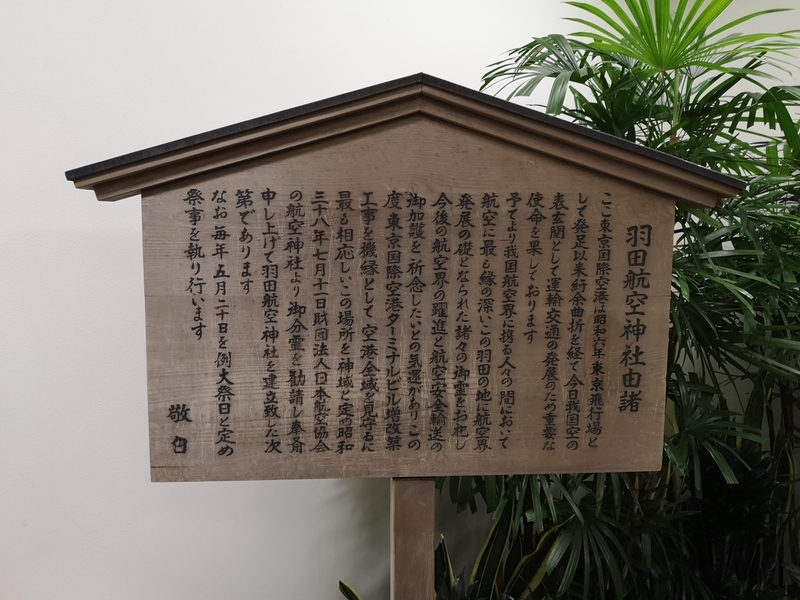 羽田航空神社由諸
ここ東京国際空港は昭和六年東京飛行場と
して発足以来紆余曲折を経て今日我国空の
表玄関として運輸交通の発展のため重要な
使命を果しております
予てより我国航空界に携る人々の間において
航空に最も縁の深いこの羽田の地に航空界
発展の礎となられた諸々の御霊をお祀し
今後の航空界の躍進と航空安全輸送の
御加護を祈念したいとの気運があり この
度 東京国際空港ターミナルビル増改築
工事を機縁として 空港全域を見守るに
最も相応しいこの場所を神域と定め昭和
三十八年七月十二日財団法人日本航空協会
の航空神社より 御分霊を勧請し奉斎
申し上げて羽田航空神社を建立致した次
第であります
なお 毎年 五月二十日を例大祭日と定め
祭事を執り行います
敬白